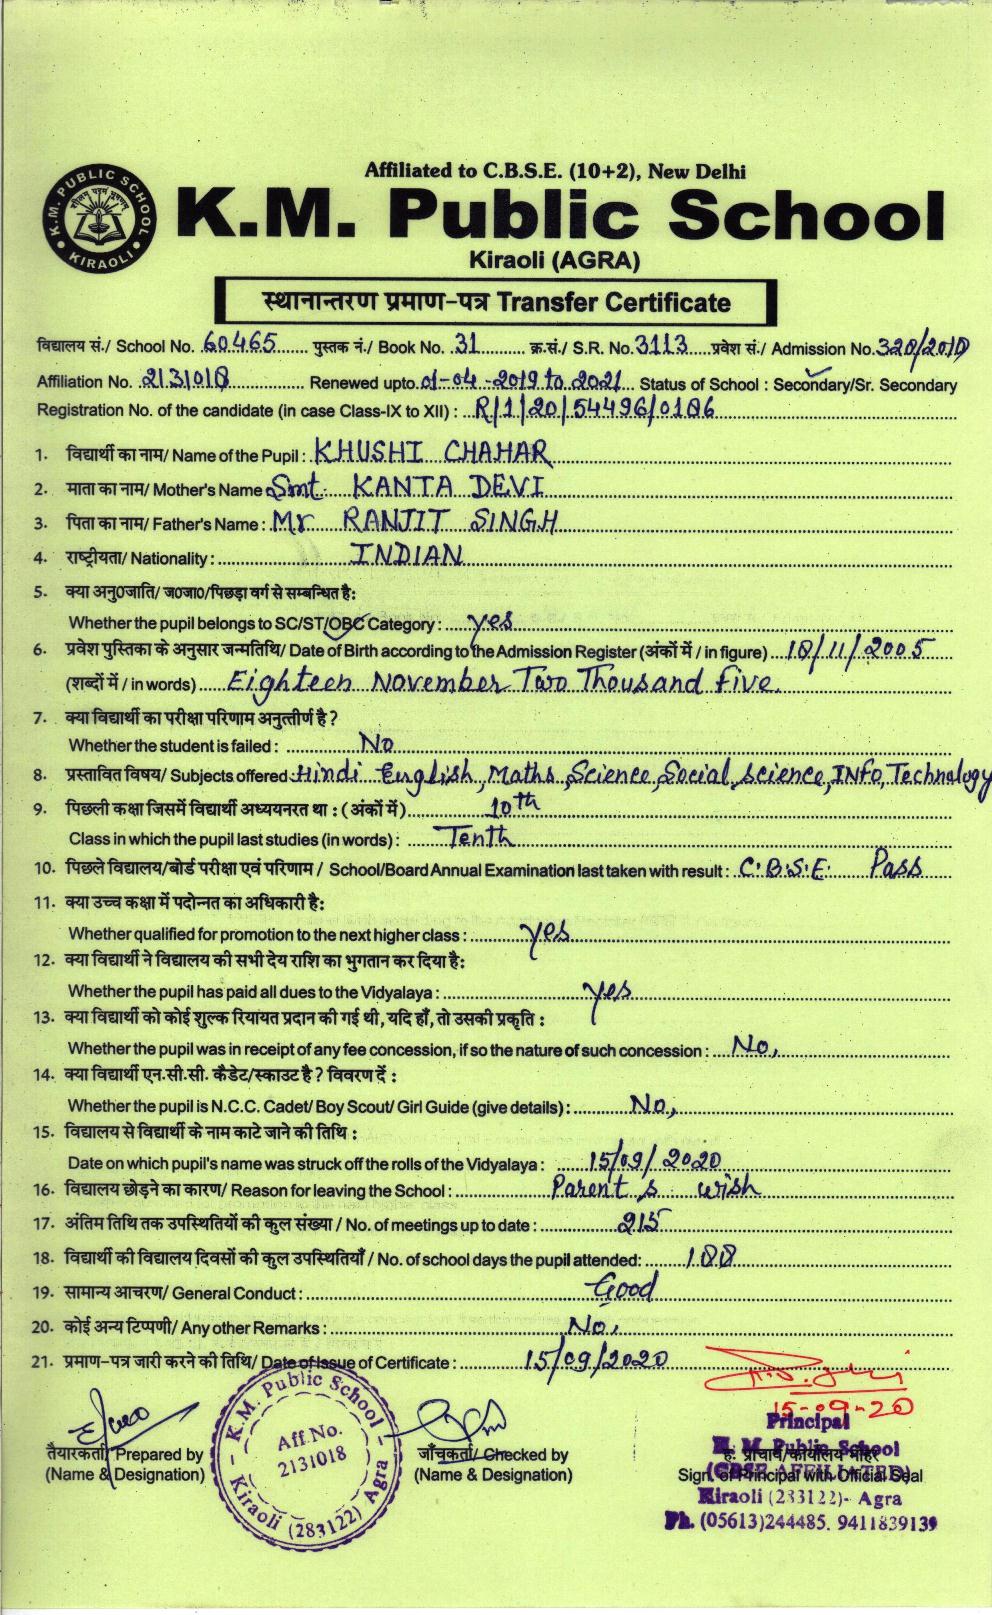 Affiliated to C.B.S.E. (10+2), New Delhi
K.M. PUBLIC SCHOOL
KIRAOLI
K.M. Public School
Kiraoli (AGRA)
स्थानान्तरण प्रमाण-पत्र Transfer Certificate
विद्यालय सं./ School No. 60465 पुस्तक नं./ Book No. 31 क्र.सं./ S.R. No. 3113 प्रवेश सं./ Admission No. 320/2010
Affiliation No. 2131018 Renewed upto 01-04-2019 to 2021 Status of School : Secondary/Sr. Secondary
Registration No. of the candidate (in case Class-IX to XII) : R/1/20/54496/0186
1. विद्यार्थी का नाम/ Name of the Pupil : KHUSHI CHAHAR
2. माता का नाम/ Mother's Name Smt. KANTA DEVI
3. पिता का नाम/ Father's Name : Mr RANJIT SINGH
4. राष्ट्रीयता/ Nationality : INDIAN
5. क्या अनु0जाति/ ज0जा0/पिछड़ा वर्ग से सम्बन्धित है:
Whether the pupil belongs to SC/ST/OBC Category : yes
6. प्रवेश पुस्तिका के अनुसार जन्मतिथि/ Date of Birth according to the Admission Register (अंकों में / in figure) 18/11/2005
(शब्दों में / in words) Eighteen November Two Thousand five.
7. क्या विद्यार्थी का परीक्षा परिणाम अनुत्तीर्ण है ?
Whether the student is failed : No
8. प्रस्तावित विषय/ Subjects offered : Hindi English, Maths, Science, Social science, INFO, Technology
9. पिछली कक्षा जिसमें विद्यार्थी अध्ययनरत था : (अंकों में) 10th
Class in which the pupil last studies (in words) : Tenth
10. पिछले विद्यालय/बोर्ड परीक्षा एवं परिणाम / School/Board Annual Examination last taken with result : C.B.S.E. Pass
11. क्या उच्च कक्षा में पदोन्नत का अधिकारी है:
Whether qualified for promotion to the next higher class : yes
12. क्या विद्यार्थी ने विद्यालय की सभी देय राशि का भुगतान कर दिया है:
Whether the pupil has paid all dues to the Vidyalaya : yes
13. क्या विद्यार्थी को कोई शुल्क रियायत प्रदान की गई थी, यदि हाँ, तो उसकी प्रकृति :
Whether the pupil was in receipt of any fee concession, if so the nature of such concession : No,
14. क्या विद्यार्थी एन.सी.सी. कैडेट/स्काउट है ? विवरण दें :
Whether the pupil is N.C.C. Cadet/ Boy Scout/ Girl Guide (give details) : No,
15. विद्यालय से विद्यार्थी के नाम काटे जाने की तिथि :
Date on which pupil's name was struck off the rolls of the Vidyalaya : 15/09/2020
16. विद्यालय छोड़ने का कारण/ Reason for leaving the School : Parent s wish
17. अंतिम तिथि तक उपस्थितियों की कुल संख्या / No. of meetings up to date : 215
18. विद्यार्थी की विद्यालय दिवसों की कुल उपस्थितियाँ / No. of school days the pupil attended: 188
19. सामान्य आचरण/ General Conduct : Good
20. कोई अन्य टिप्पणी/ Any other Remarks : No,
21. प्रमाण-पत्र जारी करने की तिथि/ Date of Issue of Certificate : 15/09/2020
15-09-20
K. M. Public School
Aff.No.
2131018
Kiraoli (283122) Agra
तैयारकर्ता/ Prepared by
(Name & Designation)
जाँचकर्ता/ Checked by
(Name & Designation)
Principal
K. M. Public School
ह. प्राचार्य/कार्यालय मोहर
(CBSE AFFILIATED)
Sign. of Principal with Official Seal
Kiraoli (283122)- Agra
Ph. (05613)244485, 9411839139